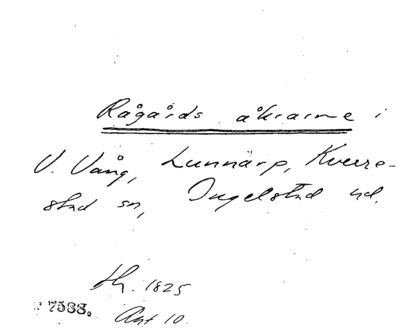 Rågårds åkrarne i
V. Vång, Lunnärp, Kverre-
stad sn, Ingelstad hd.
th. 1825
7388. Akt 10.